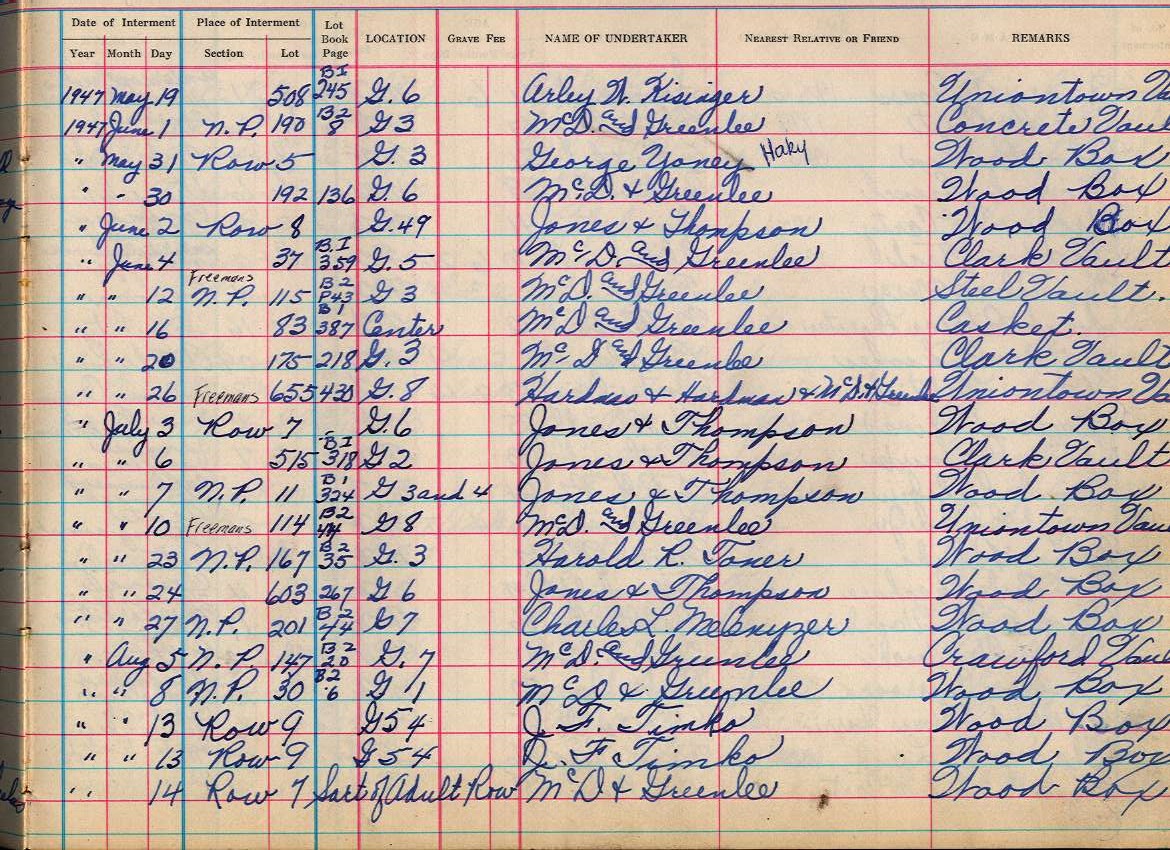 Date of Interment Place of Interment Lot Book Page LOCATION GRAVE FEE NAME OF UNDERTAKER NEAREST RELATIVE OR FRIEND REMARKS
Year Month Day Section Lot
1947 May 19 508 B I 245 G. 6 Arley N. Kisinger Uniontown Va
1947 June 1 N. P. 190 B 2 8 G 3 McD. and Greenlee Concrete Vaul
" May 31 Row 5 G. 3 George Yoney Haky Wood Box
" " 30 192 136 G. 6 McD. & Greenlee Wood Box
" June 2 Row 8 G. 49 Jones & Thompson Wood Box
" June 4 37 B. I 359 G. 5 McD. and Greenlee Clark Vault
" " 12 Freemans N. P. 115 B 2 P43 G 3 McD. and Greenlee Steel Vault.
" " 16 83 B 1 387 Center McD and Greenlee Casket.
" " 20 175 218 G. 3 Mc. D and Greenlee Clark Vault
" " 26 Freemans 655 430 G. 8 Hardman & Hardman & McD. & Greenle Uniontown Va
" July 3 Row 7 G. 6 Jones & Thompson Wood Box
" " 6 515 B I 318 G 2 Jones & Thompson Clark Vault
" " 7 N. P. 11 B 1 324 G 3 and 4 Jones & Thompson Wood Box
" " 10 Freemans 114 B 2 44 G 8 McD. and Greenlee Uniontown Vau
" " 23 N. P. 167 B 2 35 G. 3 Harold R. Toner Wood Box
" " 24 603 267 G 6 Jones & Thompson Wood Box
" " 27 N. P. 201 B. 2 74 G 7 Charles L. Wood Box
" Aug 5 N. P. 147 B 2 20 G. 7 McD. and Greenlee Crawford Vaul
" " 8 N. P. 30 B2 6 G 1 McD & Greenlee Wood Box
" " 13 Row 9 G 54 J. F. Timko Wood Box
" " 13 Row 9 G 54 F. Timko Wood Box
" " 14 Row 7 of Adult Row McD & Greenlee Wood Box